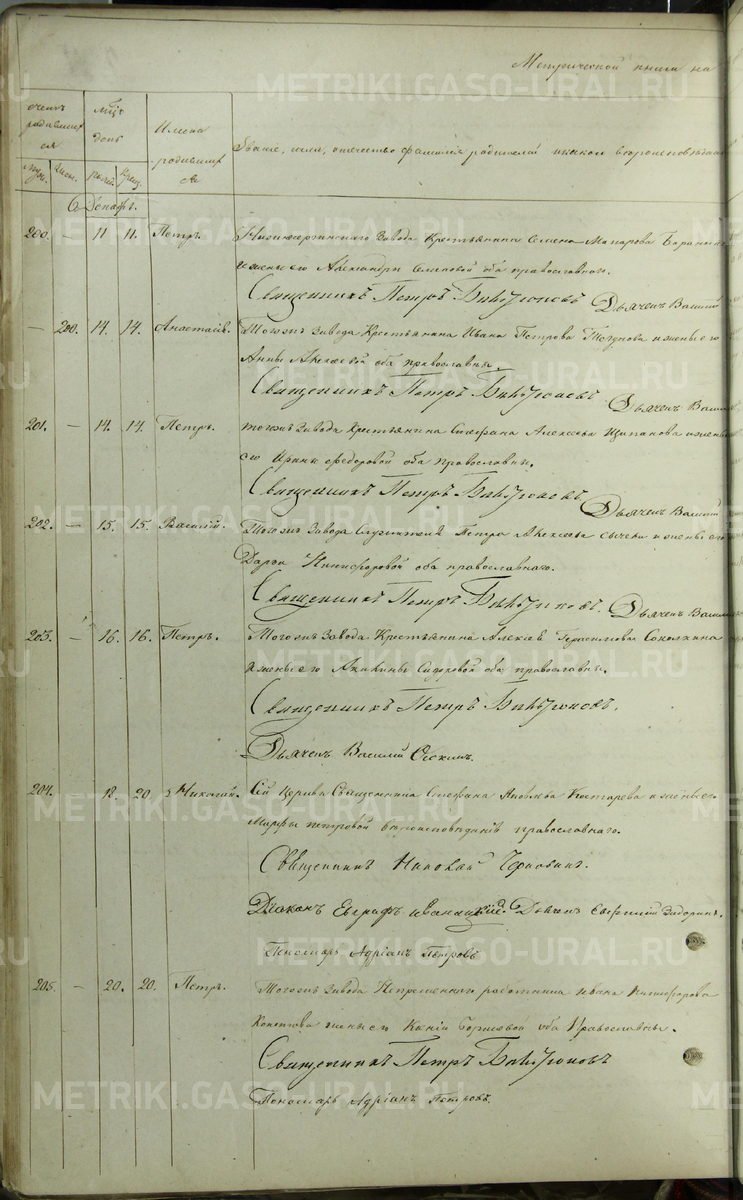 Метрической книги на
METRIKI.GASO-URAL.RU
счетъ родившихся
Мцъ день
Имена родившихся
Званіе, имя, отечество фамилія родителей и какого вероисповедан
муж. жен. рожд. крещ.
Декабрь.
200. — 11 11. Петръ. завода Крестьянина Семена Макарова
и жены его Александры Семеновой оба православнаго.
Священникъ Петръ Дьячекъ Василий
— 200. 14. 14. Анастасія. Тогожъ завода Крестьянина Ивана Петрова и жены его
Анны Алексеевой оба православны.
Священникъ Петръ Дьячекъ Васил
201. — 14. 14. Петръ. тогожъ завода крестьянина Стефана Алексеева Щипанова и жены
его Ирины Федоровой оба православны.
Священникъ Петръ Дьячекъ Василий
202. — 15. 15. Василій. Тогожъ завода Служителя Петра Алексеева Сычева и жены его
Дарьи Никифоровой оба православнаго.
Священникъ Петръ Дьячекъ Васили
203. — 16. 16. Петръ. Тогожъ завода Крестьянина Алексея Герасимова Соколкина
и жены его Акилины Сидоровой оба православны.
Священникъ Петръ
Дьячекъ Василий
204. 18. 20 Николай. Сей Церкви Священника Стефана Яковлева Костарева и жены его
Марфы петровой вероисповеданія православнаго.
Священникъ Николай
Діаконъ Евграфъ Дьячекъ Евгений
Пономарь Адріанъ Петровъ
205. — 20. 20. Петръ. Тогожъ завода Непременнаго работника Ивана Никифорова
жены его Ксніи оба Православны.
Священникъ Петръ
Пономарь Адріанъ Петровъ.